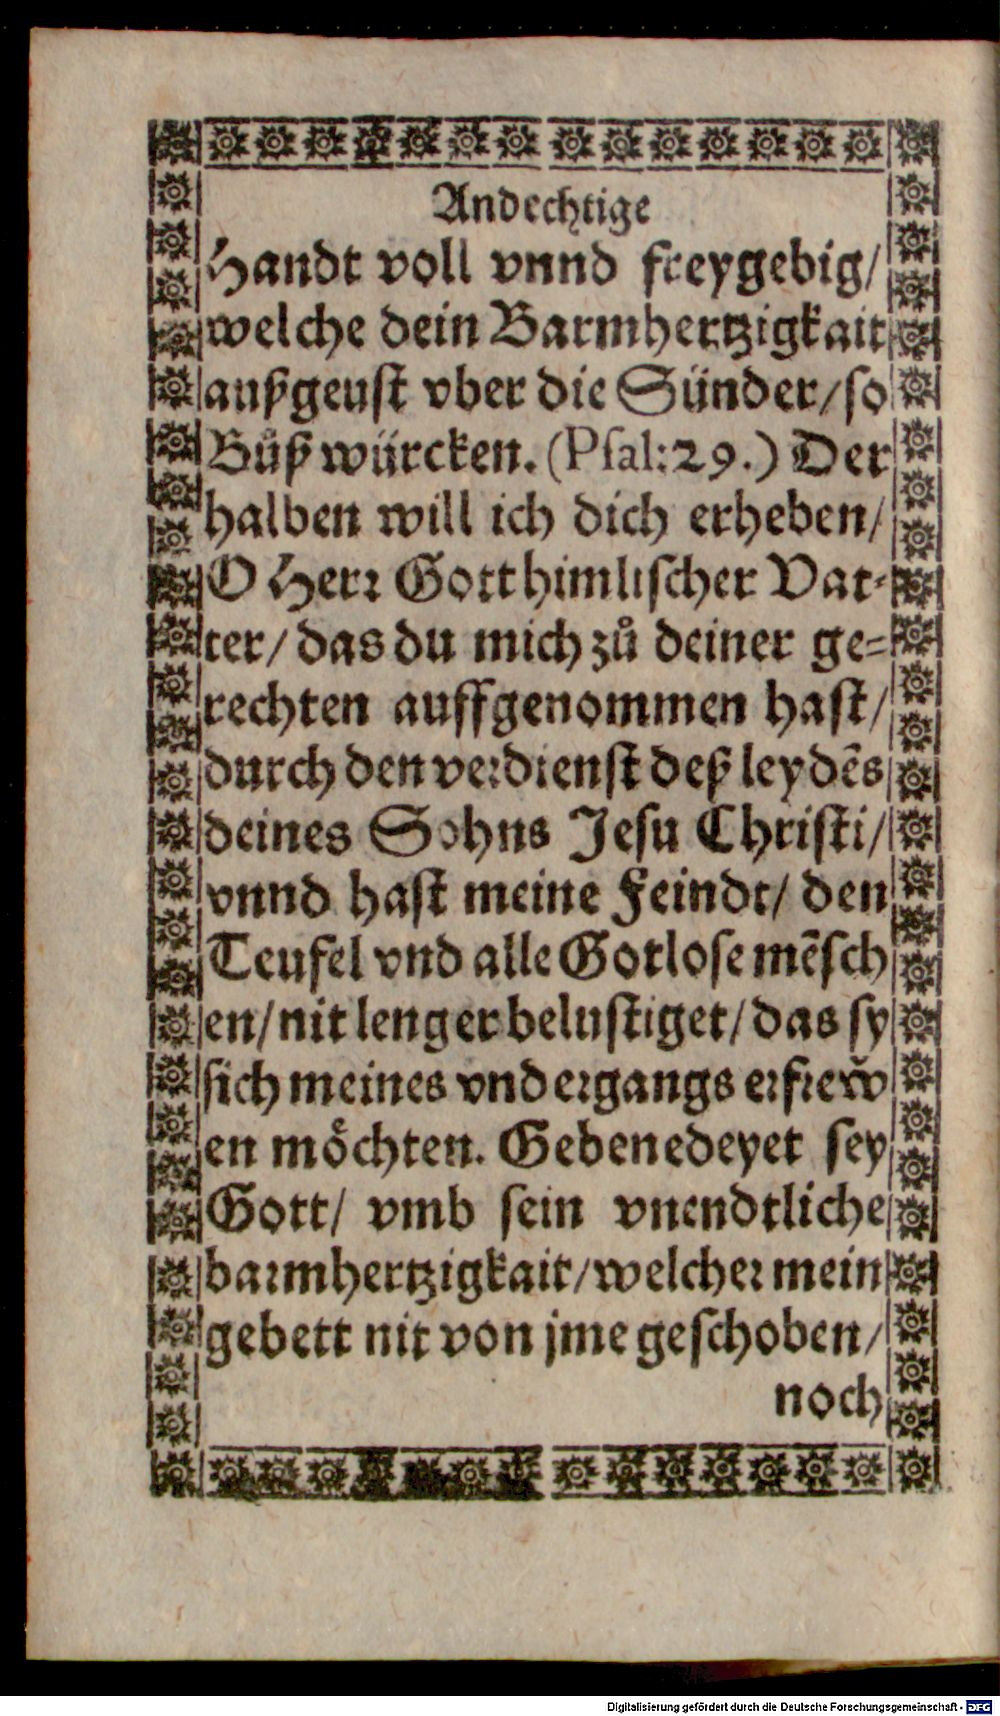 Andechtige
Handt voll vnnd freygebig/
welche dein Barmhertzigkait
außgeust vber die Sünder/so
Bůß würcken. (Psal:29.) Der
halben will ich dich erheben/
O Herr Gott himlischer Vat-
ter/ das du mich zů deiner ge-
rechten auffgenommen hast/
durch den verdienst deß leydẽs
deines Sohns Jesu Christi/
vnnd hast meine Feindt/ den
Teufel vnd alle Gotlose mẽsch
en/nit lenger belustiget/das sy
sich meines vndergangs erfrew̌
en möchten. Gebenedeyet sey
Gott/ vmb sein vnendtliche
barmhertzigkait/welcher mein
gebett nit von jme geschoben/
noch
Digitalisierung gefördert durch die Deutsche Forschungsgemeinschaft - DFG